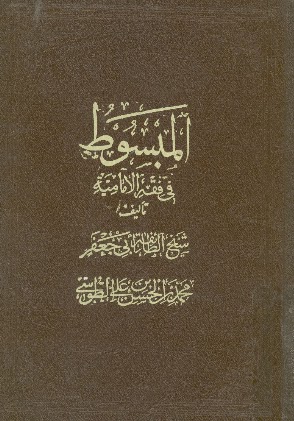 المبسوط
في فقه الإمامية
تأليف
شيخ الطائفة أبي جعفر
محمد بن الحسن بن علي الطوسي